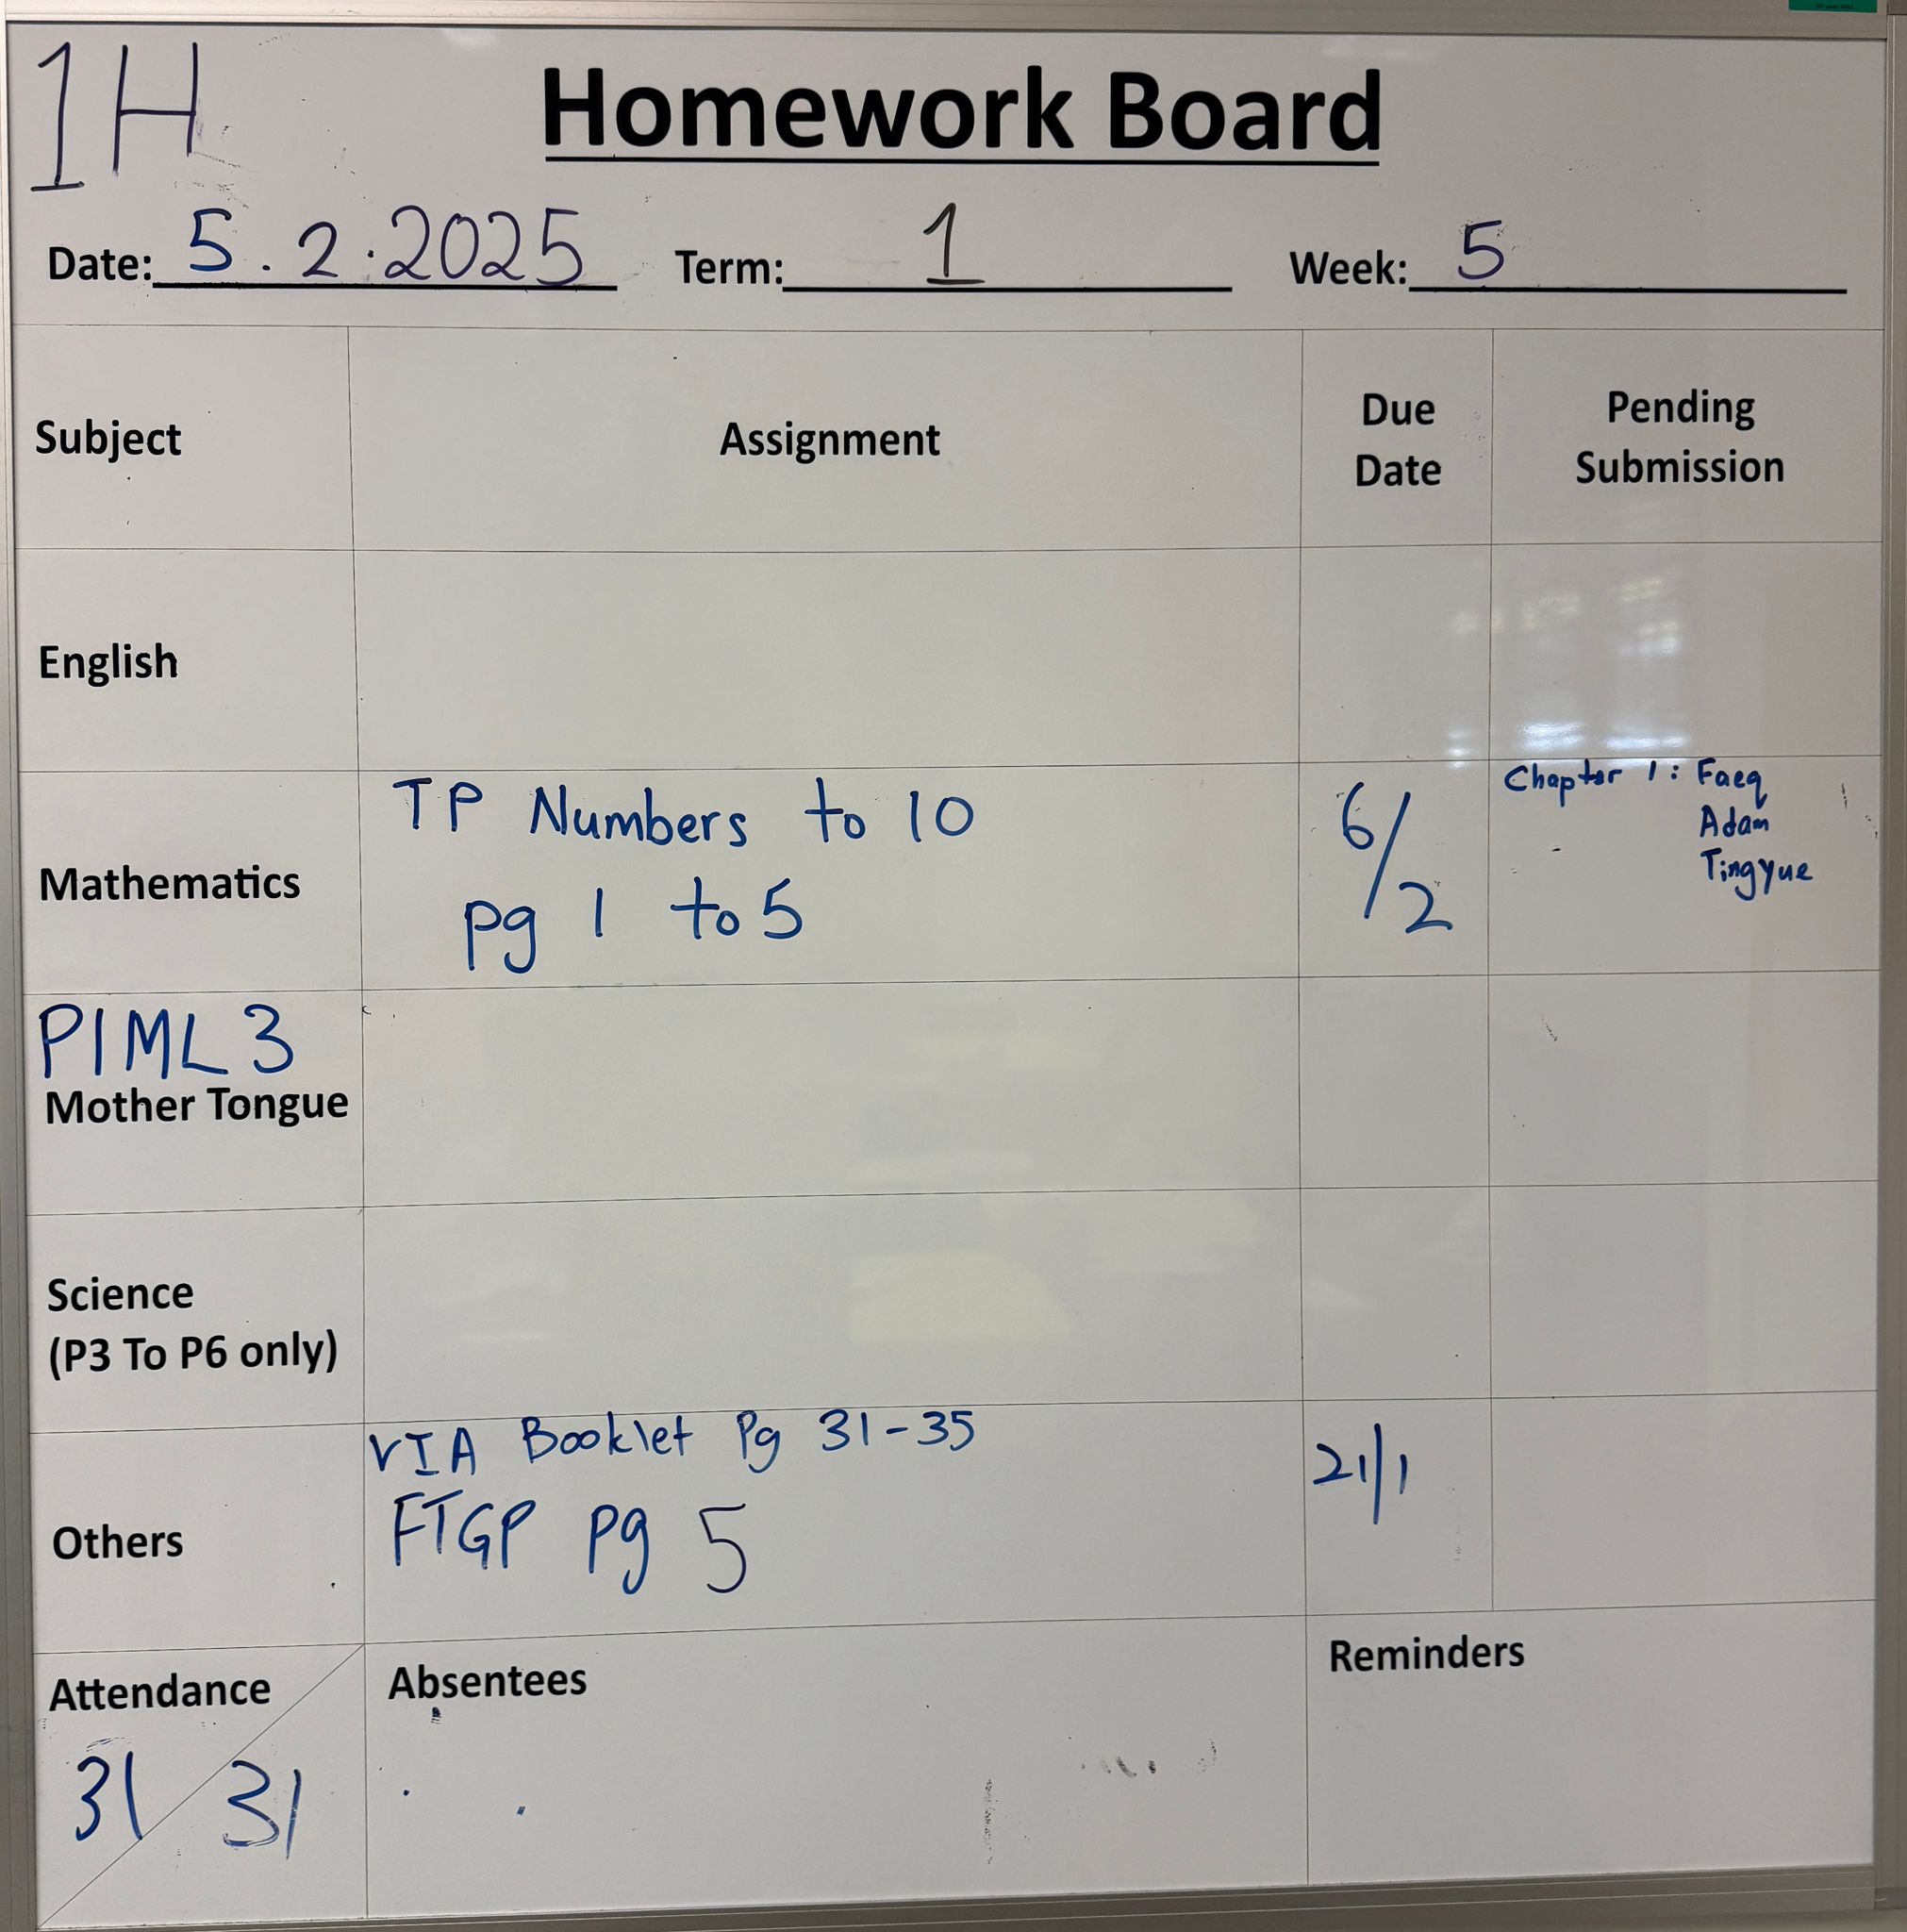 1H
Homework Board
Date: 5.2.2025 Term: 1 Week: 5
Subject
Assignment
Due
Date
Pending
Submission
English
Mathematics
TP Numbers to 10
pg 1 to 5
6/2
Chapter 1: Faeq
Adam
Tingyue
PIML 3
Mother Tongue
Science
(P3 To P6 only)
Others
VIA Booklet Pg 31-35
FTGP pg 5
21/1
Attendance
31 / 31
Absentees
Reminders